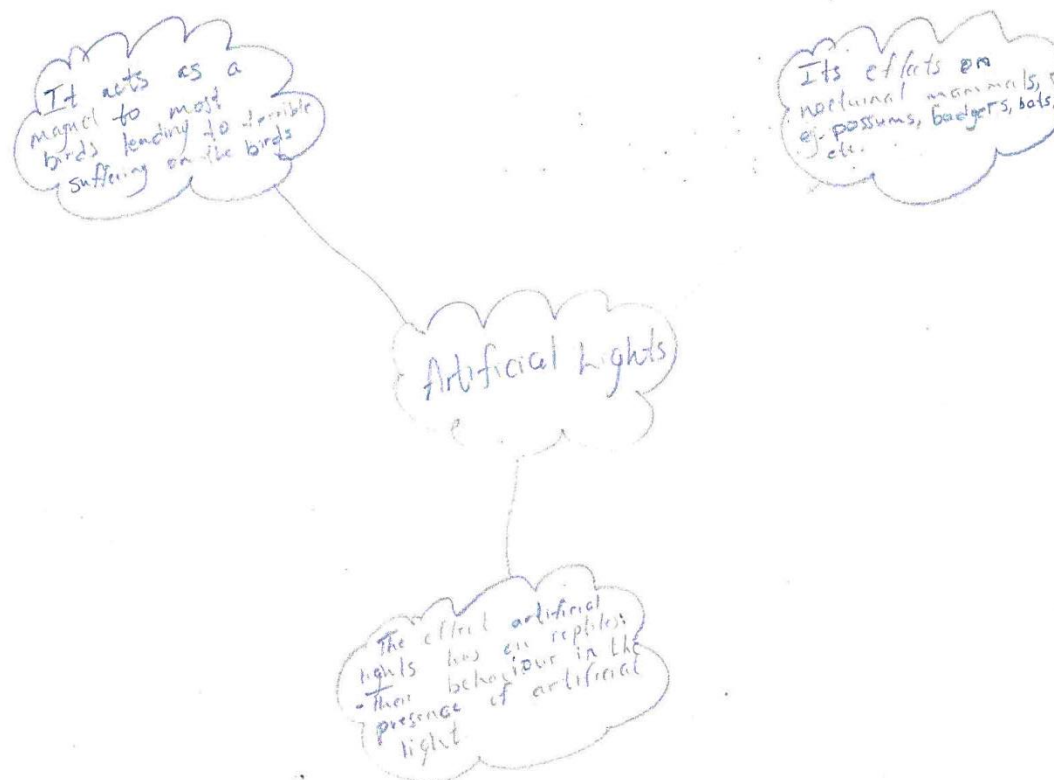 It acts as a
magnet to most
birds leading to terrible
suffering on the birds
Its effects on
nocturnal mammals,
eg. possums, badgers, bats,
etc.
Artificial Lights
The effect artificial
lights has on reptiles:
- Their behaviour in the
presence of artificial
light